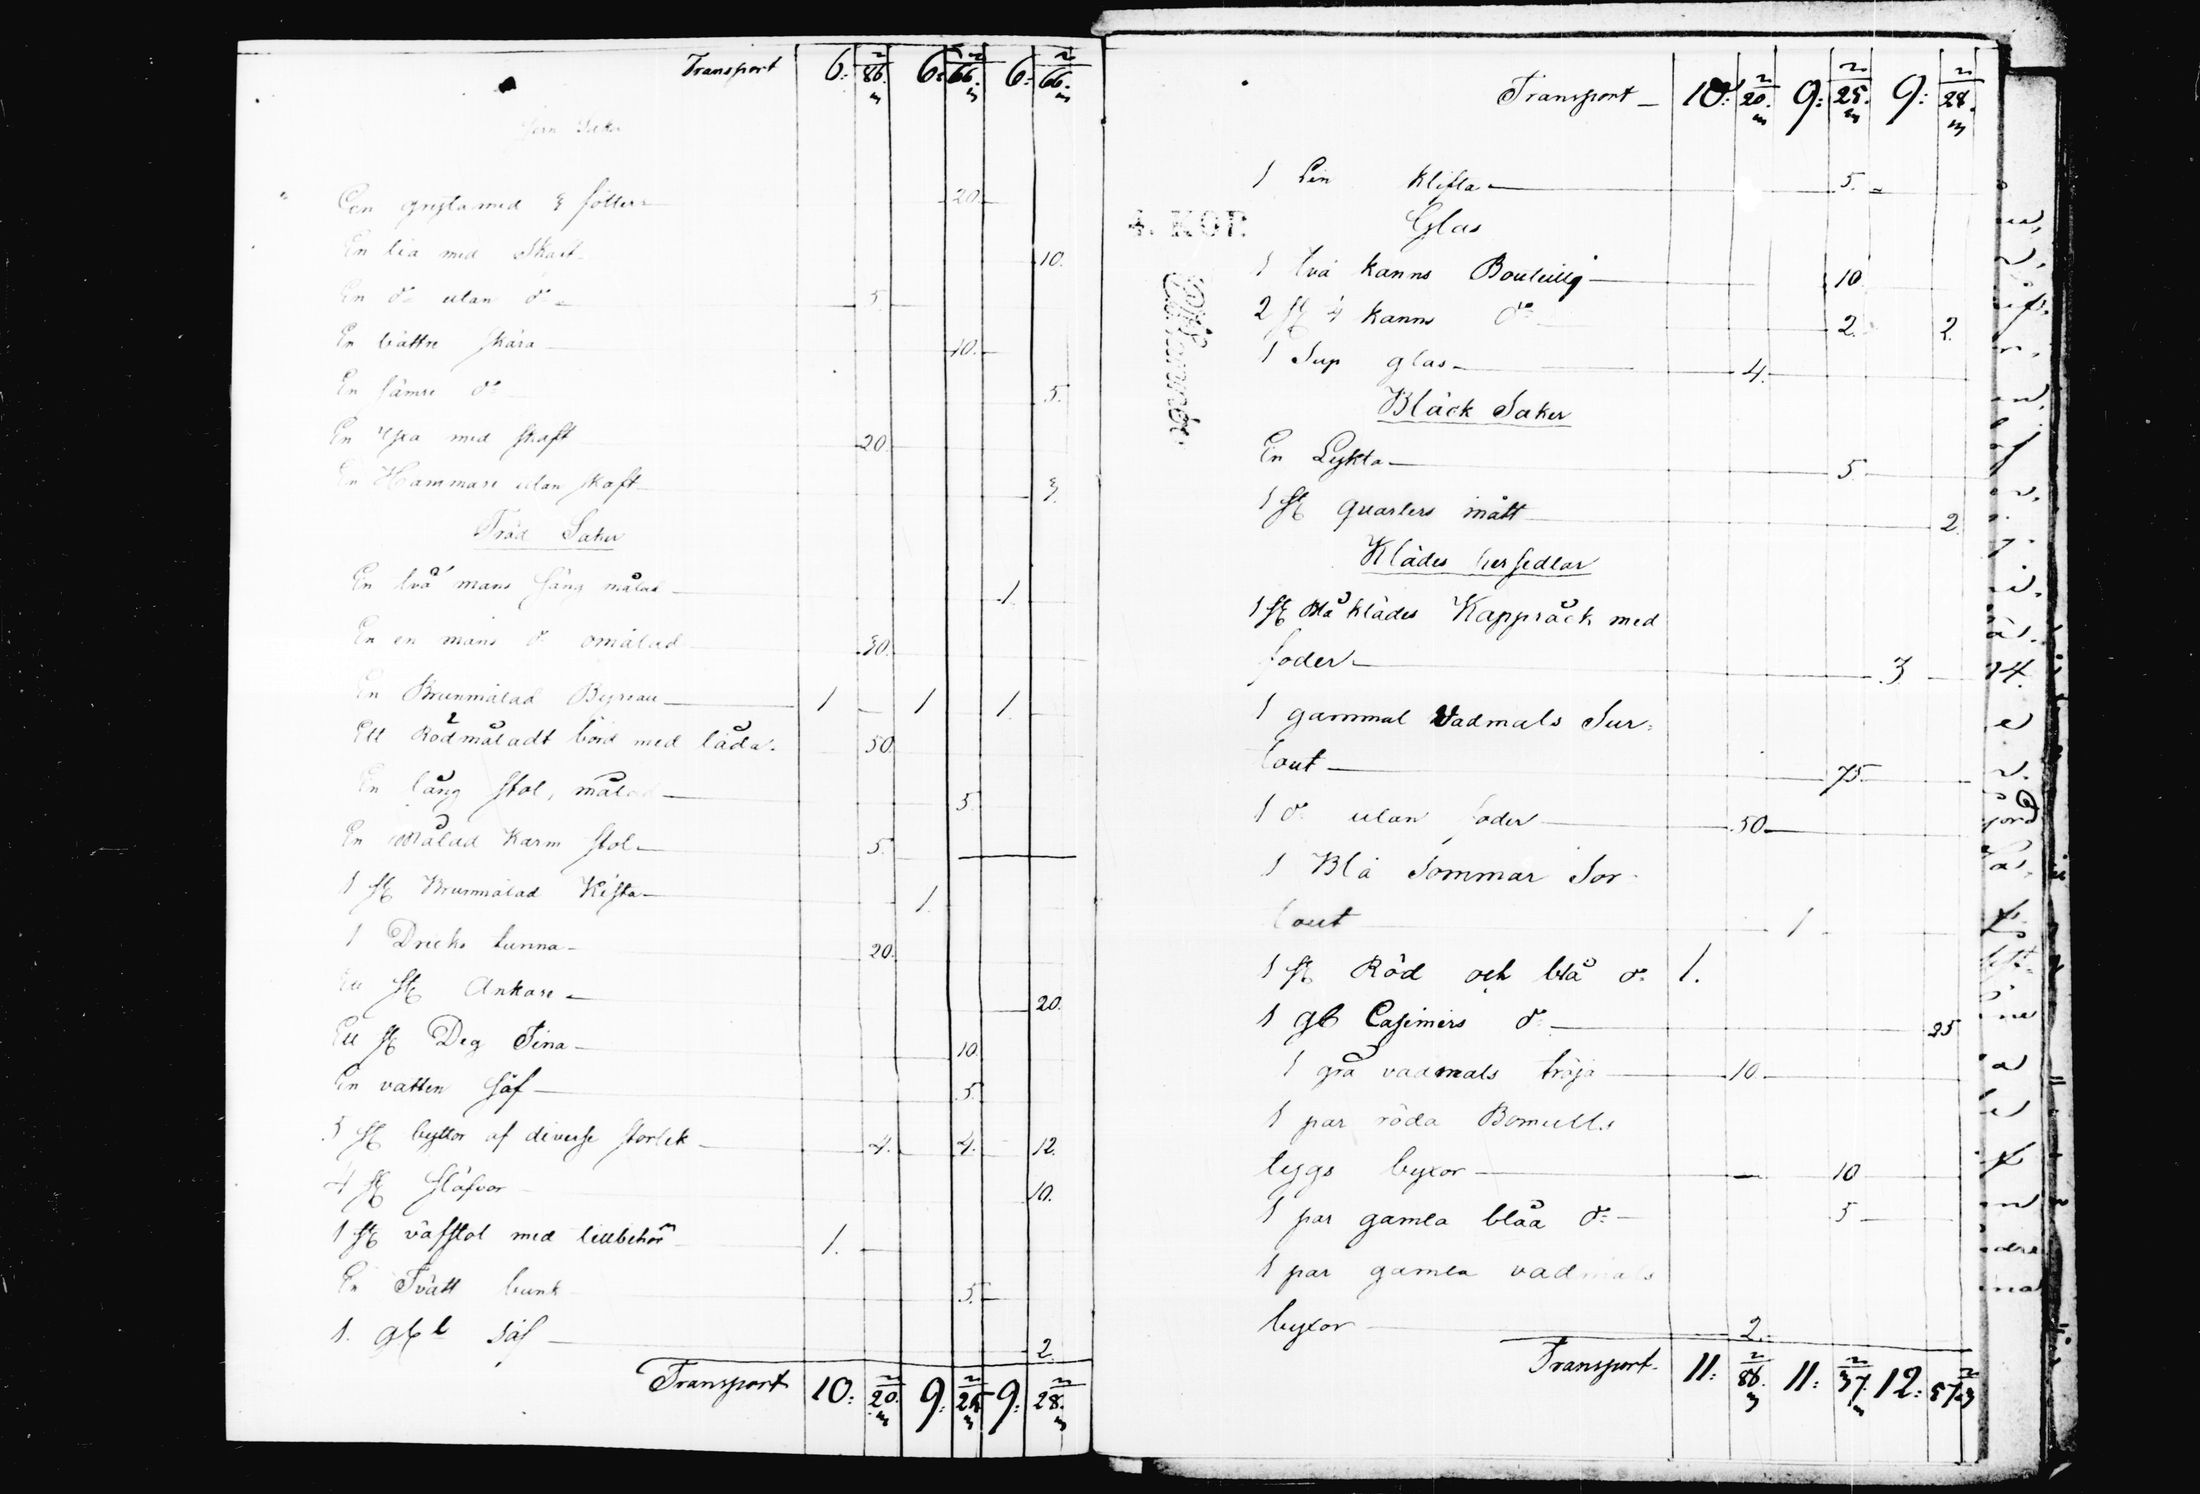 Transport 6: 2/3 86. 6: 2/3 66. 6: 2/3 66.
Jern Saker
En gryta med 3 fötter 20.
En lia med Skaft 10.
En do utan do 5.
En bättre skära 10.
En sämre do 5.
En yxa med skaft 20.
En Hammare utan skaft 3.
Träd Saker
En två mans säng målad 1.
En en mans do omålad 30.
En Brunmålad Byreau 1 1 1.
Ett Rödmåladt bord med låda. 50.
En lång stol, målad 5.
En målad Karm stol 5.
1 st Brunmålad Kista 1.
1 Dricks tunna 20.
En st Ankare 20.
En st Deg Tina 10.
En vattenså f 5.
3 st byttor af diverse storlek 4. 4. 12.
4 st stäfvor 10.
1 st väfstol med tillbehör 1.
En Tvätt bunk 5.
1. gl såf 2.
Transport 10: 2/3 20. 9: 2/3 25 9: 2/3 28.
Transport 10: 2/3 20. 9: 2/3 25. 9: 2/3 28.
1 Lin klifta 5.
4. KOP.
Glas
1 två kanns Bouteillj 10
2 st 4 kanns do 2. 2.
1 Sup glas 4.
Bläck Saker
En Lykta 5.
1 st quarters mått 2
Klädes persedlar
1 st Blå klädes Kappråck med
foder 3
1 gammal Vadmals Sur=
tout 75.
1 do utan foder 50
1 Blå Sommar Sor-
tout 1
1 st Röd och blå do 1.
1 gl Casimirs do 25
1 grå vadmals tröja 10.
1 par röda Bomulls
tygs byxor 10
1 par gamla blåa do 5
1 par gamla vadmals
byxor 2.
Transport. 11: 2/3 86. 11: 2/3 37. 12: 57 2/3